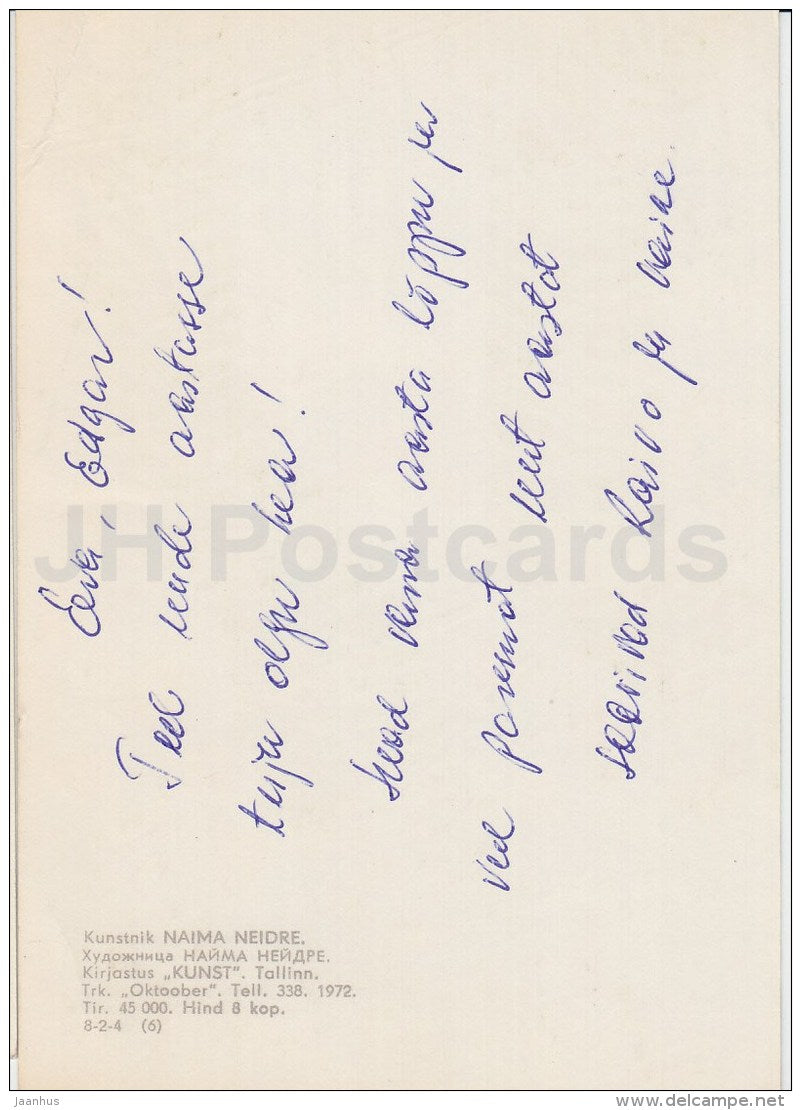 Eevi, Edgar!
Teel uude aastasse
tuju olgu hea!
Head vana aasta lõppu ja
veel paremat uut aastat
soovivad Raivo ja
Kunstnik NAIMA NEIDRE.
Художница НАЙМА НЕЙДРЕ.
Kirjastus „KUNST". Tallinn.
Trk. „Oktoober". Tell. 338. 1972.
Tir. 45 000. Hind 8 kop.
8-2-4 (6)
JH Postcards
jaanhus
www.delcampe.net